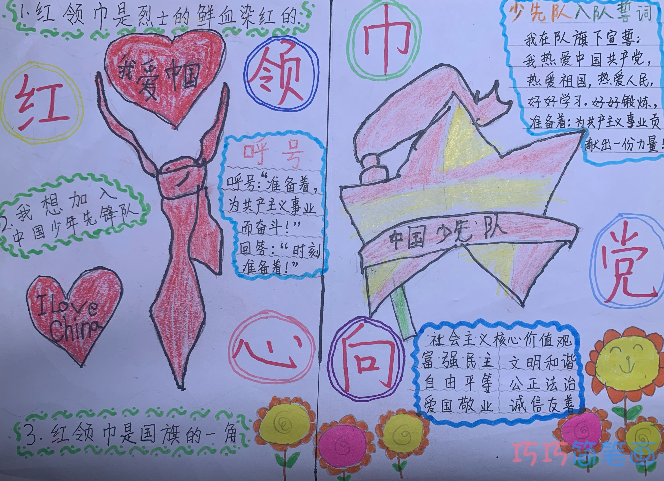 1.红领巾是烈士的鲜血染红的.
红
领
我爱中国
呼号
呼号:“准备着,
为共产主义事业
而奋斗!”
回答:“时刻
准备着!”
2.我想加入
中国少年先锋队
I Love
China
心
3.红领巾是国旗的一角
巾
少先队入队誓词
我在队旗下宣誓:
我热爱中国共产党,
热爱祖国,热爱人民,
好好学习.好好锻炼,
准备着:为共产主义事业贡
献出一份力量!
中国少先队
党
向
社会主义核心价值观
富强民主 文明和谐
自由平等 公正法治
爱国敬业 诚信友善
巧巧简笔画